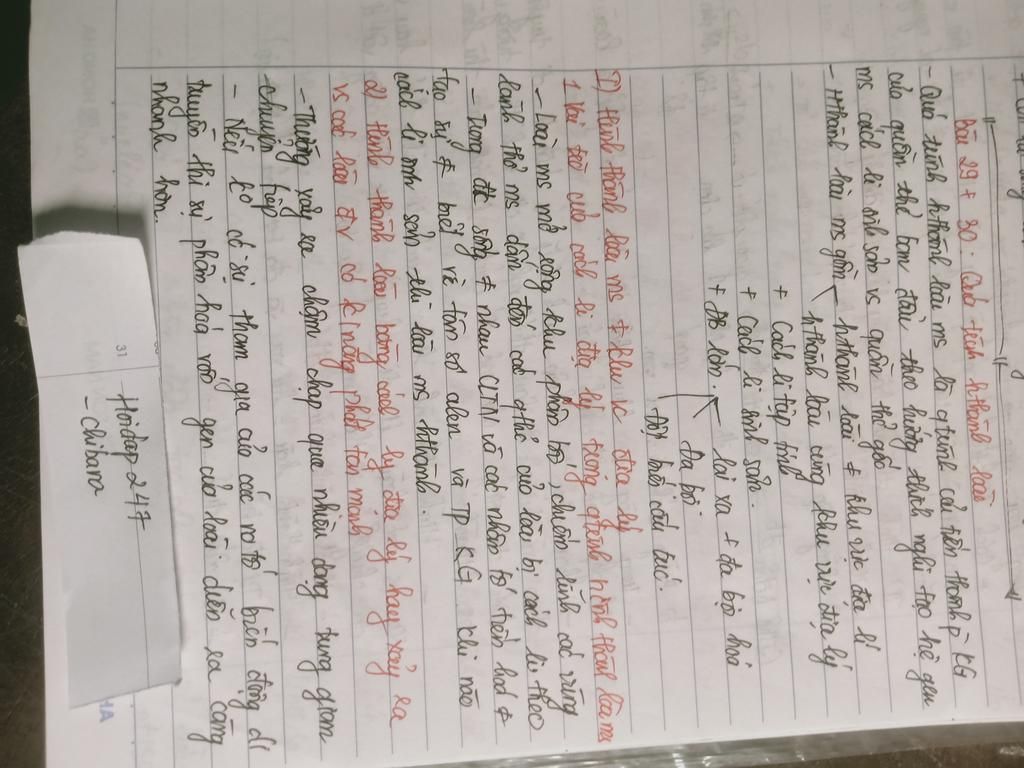 Bài 29 + 30: Quá trình hthành loài
- Quá trình hthành loài ms là qtrình cải biến thành p` KG
của quần thể ban đầu theo hướng thích nghi tạo hệ gen
ms cách li sinh sản vs quần thể gốc
- Hthành loài ms gồm hthành loài ≠ khu vực địa lí
hthành loài cùng khu vực địa lý
+ Cách li tập tính
+ Cách li sinh sản.
+ ĐB lớn. lai xa + đa bội hoá
đa bội.
đột biến cấu trúc.
I) Hình thành loài ms ≠ khu vực địa lí
1 Vai trò của cách li địa lý trong qtrình hình thành loài ms
- Loài ms mở rộng khu phân bố, chiếm lĩnh các vùng
lãnh thổ ms dẫn đến các qthể của loài bị cách li theo
- Trong đk sống ≠ nhau CLTN và các nhân tố tiến hoá ≠
tạo sự ≠ biệt về tần số alen và TP KG khi nào
cách li sinh sản thì loài ms hthành.
2) Hình thành loài bằng cách ly địa lý hay xảy ra
vs các loài đv có k/năng phát tán mạnh
- Thường xảy ra chậm chạp qua nhiều dạng trung gian
chuyển tiếp
- Nếu có sự tham gia của các nhân tố biến động di
truyền thì sự phân hoá vốn gen của loài diễn ra càng
nhanh hơn.
31
Hoidap 247
- chibana
HA